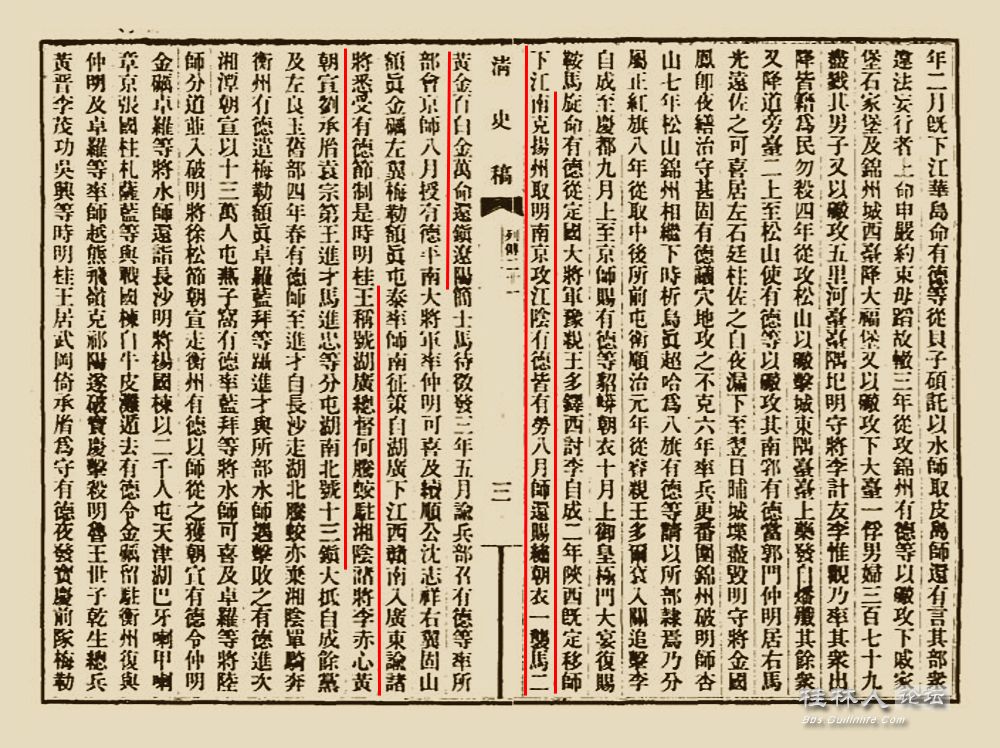 年二月旣下江華島命有德等從貝子碩託以水師取皮島師還有言其部衆
違法妄行者上命申嚴約束毋蹈故轍三年從攻錦州有德等以礮攻下戚家
堡石家堡及錦州城西臺降大福堡又以礮攻下大臺一俘男婦三百七十九
盡戮其男子又以礮攻五里河臺臺隅圮明守將李計友李惟觀乃率其衆出
降皆籍爲民勿殺四年從攻松山以礮擊城東隅臺臺上藥發自燔殲其餘衆
又降道旁臺二上至松山使有德等以礮攻其南郛有德當郭門仲明居右馬
光遠佐之可喜居左石廷柱佐之自夜漏下至翌日晡城堞盡毀明守將金國
鳳卽夜繕治守甚固有德議穴地攻之不克六年率兵更番圍錦州破明師杏
山七年松山錦州相繼下時析烏眞超哈爲八旗有德等請以所部隸焉乃分
屬正紅旗八年從取中後所前屯衛順治元年從睿親王多爾袞入關追擊李
自成至慶都九月上至京師賜有德等貂蟒朝衣十月上御皇極門大宴復賜
鞍馬旋命有德從定國大將軍豫親王多鐸西討李自成二年陝西旣定移師
下江南克揚州取明南京攻江陰有德皆有勞八月師還賜繡朝衣一襲馬二
清史稿 列傳二十一 三
黃金百白金萬命還鎭遼陽簡士馬待徵發三年五月諭兵部召有德等率所
部會京師八月授有德平南大將軍率仲明可喜及續順公沈志祥右翼固山
額眞金礪左翼梅勒額眞屯泰率師南征策自湖廣下江西贛南入廣東諭諸
將悉受有德節制是時明桂王稱號湖廣總督何騰蛟駐湘陰諸將李赤心黃
朝宣劉承胤袁宗第王進才馬進忠等分屯湖南北號十三鎭大抵自成餘黨
及左良玉舊部四年春有德師至進才自長沙走湖北騰蛟亦棄湘陰單騎奔
衡州有德遣梅勒額眞卓羅藍拜等躡進才與所部水師遇擊敗之有德進次
湘潭朝宣以十三萬人屯燕子窩有德率藍拜等將水師可喜及卓羅等將陸
師分道並入破明將徐松節朝宣走衡州有德以師從之獲朝宣有德令仲明
金礪卓羅等將水師還詣長沙明將楊國棟以二千人屯天津湖巴牙喇甲喇
章京張國柱札薩藍等與戰國棟自牛皮灘遁去有德令金礪留駐衡州復與
仲明及卓羅等率師越熊飛嶺克祁陽遂破寶慶擊殺明魯王世子乾生總兵
黃晉李茂功吳興等時明桂王居武岡倚承胤爲守有德夜發寶慶前隊梅勒
桂林人论坛
bbs.Guilinlife.Com